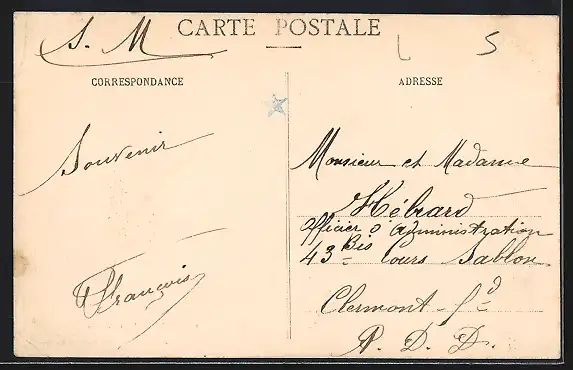 S. M
CARTE POSTALE
L 5
CORRESPONDANCE
ADRESSE
Souvenir
François
Monsieur et Madame
Hébrard
Officier d'Administration
43 Bis Cours Sablon
Clermont-Fd
P. D. D.